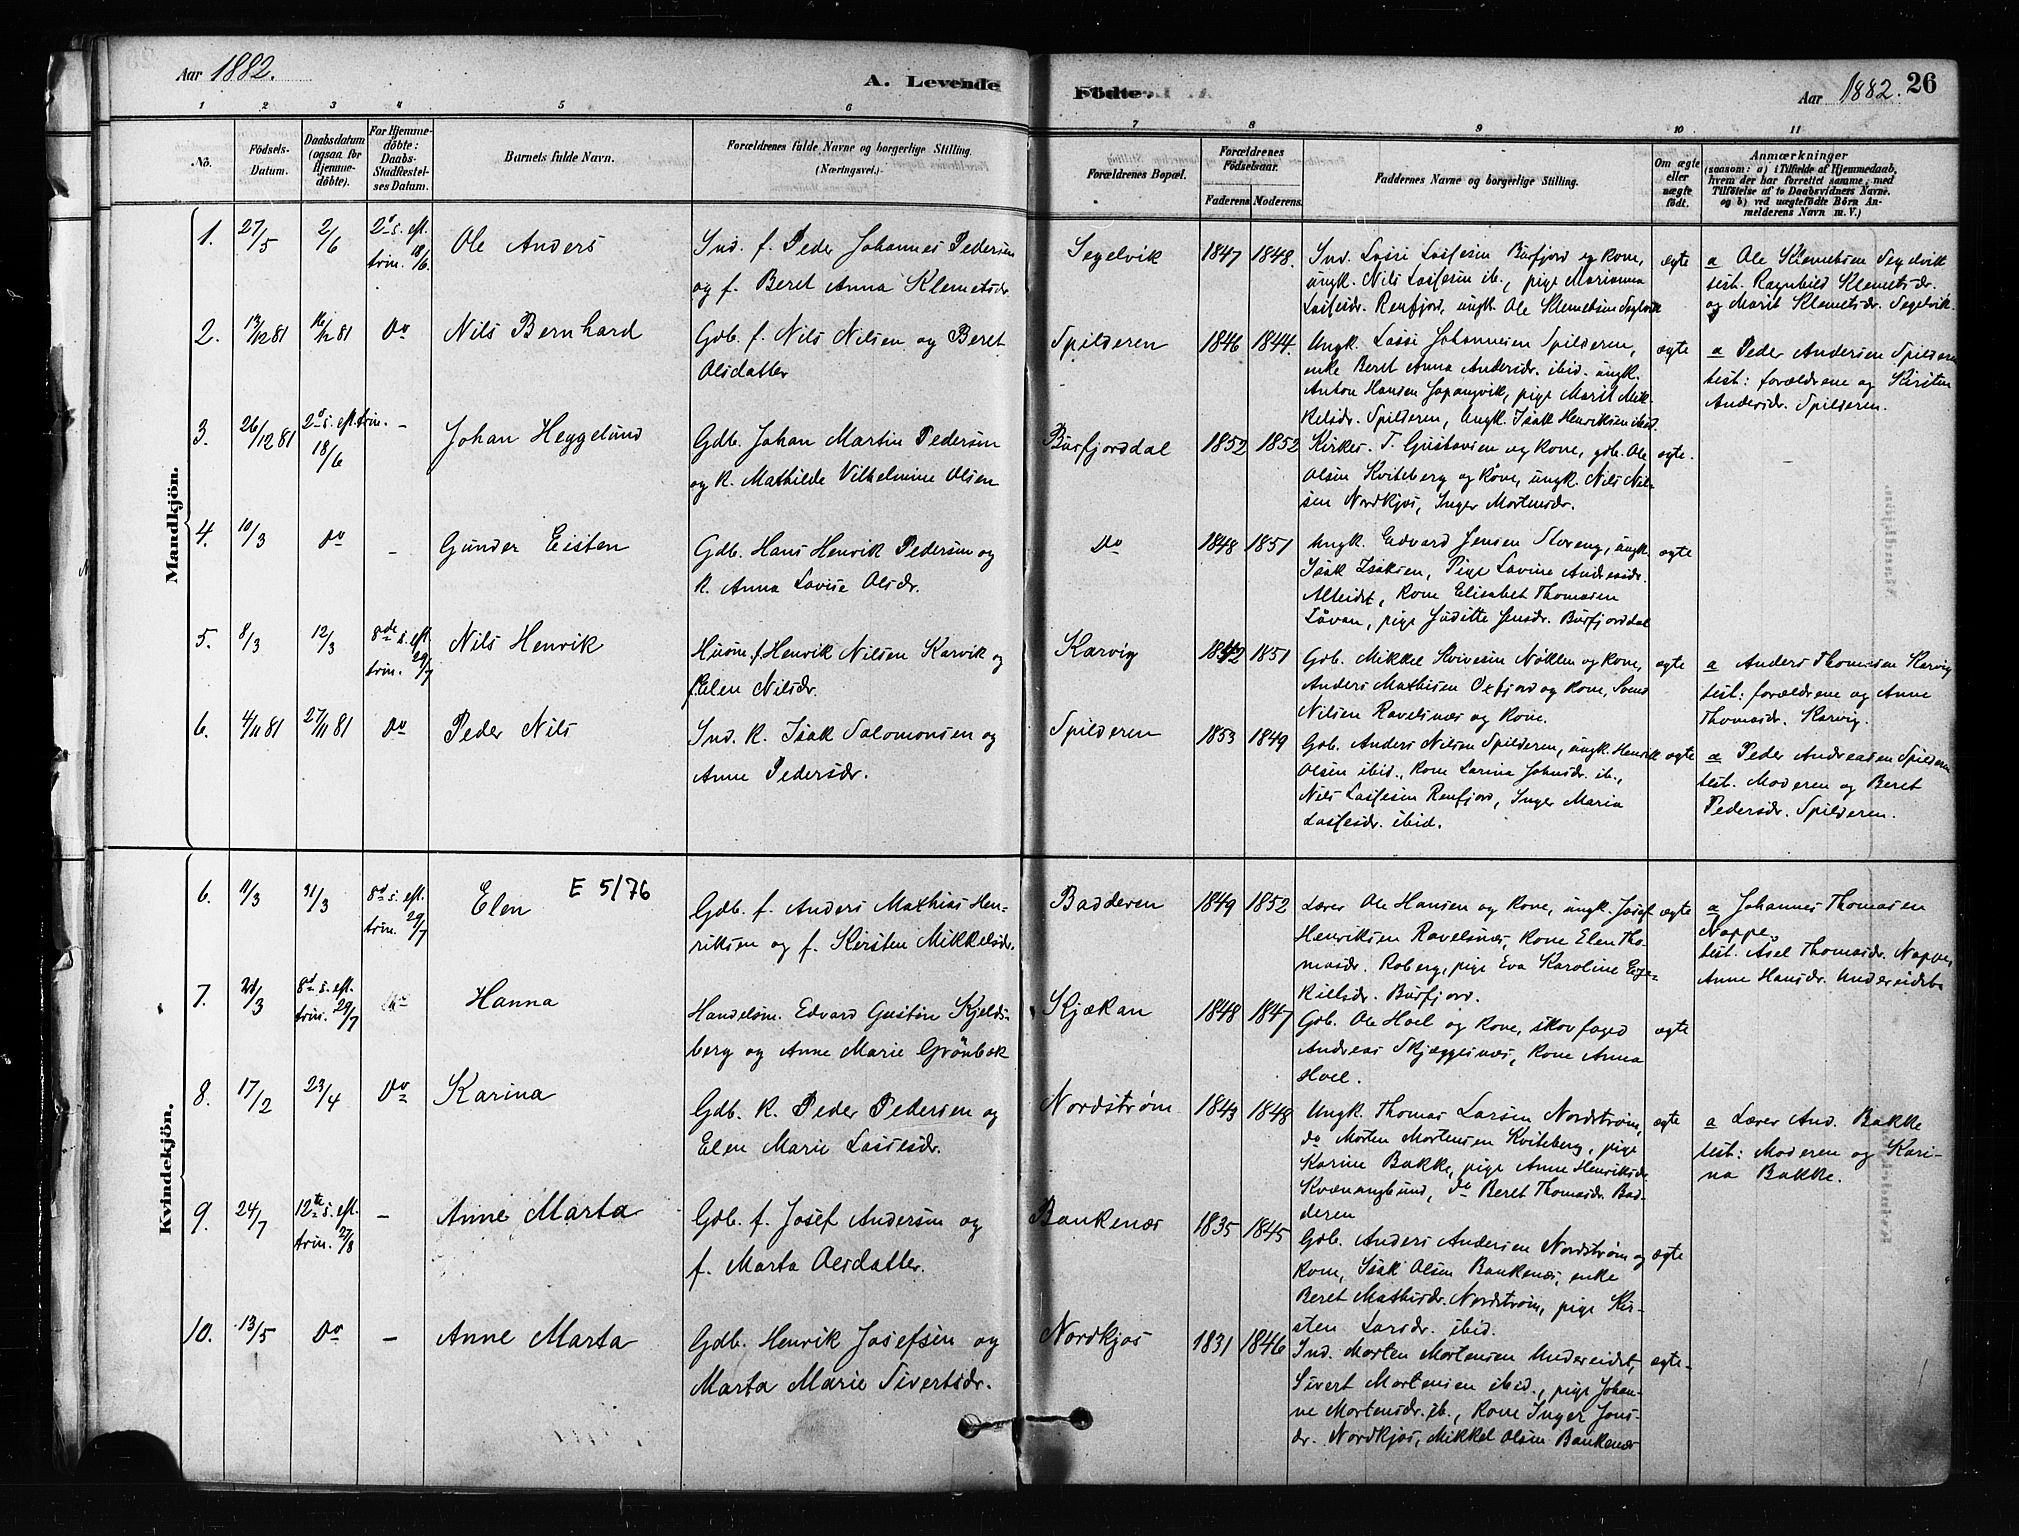 Aar 1882.
A. Levende
Födte.
Aar 1882. 26
1 2 3 4 5 6 7 8 9 10 11
No.
Födsels-
Datum.
Daabsdatum
(ogsaa for
Hjemme-
döbte).
For Hjemme-
döbte:
Daabs-
Stadfæstel-
ses Datum.
Barnets fulde Navn.
Forældrenes fulde Navne og borgerlige Stilling.
(Næringsvei.)
Forældrenes Bopæl.
Forældrenes
Födselsaar.
Faderens. Moderens.
Faddernes Navne og borgerlige Stilling.
Om ægte
eller
uægte
födt.
Anmærkninger
(saasom: a) i Tilfælde af Hjemmedaab,
hvem der har forrettet samme, med
Tilföielse af to Daabsvidners Navne.
og b) ved uægtefödte Börn An-
melderens Navn m. V.)
Mandkjön.
1. 27/5 2/6 2d s. eft.
trin. 18/6.
Ole Anders
Ind. f. Peder Johannes Pedersen
og f. Beret Anna Klemetsdr.
Segelvik 1847 1848.
Ind. Lassi Lassesen Burfjord og kone,
ungk. Nils Lassesen ib., pige Marianna
Lassesdr. Renfjord, ungk. Ole Klemetsen Seglvik
ægte
a Ole Klemetsen Segelvik
test. Ragnhild Klemetsdr.
og Marit Klemetsdr. Segelvik.
2. 13/12 81 16/12 81 Do
Nils Bernhard
Gdb. f. Nils Nilsen og Beret
Olsdatter
Spilderen 1846 1844.
Ungk. Lassi Johannesen Spilderen,
enke Beret Anna Andersdr. ibid. ungk.
Anton Hansen Jøpangvik, pige Marit Mik-
kelsdr. Spilderen, Ungk. Isak Henriksen ibid.
ægte
a Peder Andersen Spilderen
test: forældrene og Kirsten
Andersdr. Spilderen.
3. 26/12 81 2d s. eft. trin.
18/6 -
Johan Heggelund
Gdb. Johan Martin Pedersen
og k. Mathilde Vilhelmine Olsen
Burfjorddal 1852 1852
Kirkes. T. Gustavsen og kone, gdb. Ole
Olsen Kviteberg og kone, ungk. Nils Nil-
sen Nordkjos, Inger Mortensdr.
ægte.
-
4. 10/3 Do -
Gunder Eisten
Gdb. Hans Henrik Pedersen og
k. Anna Lovise Olsdr.
Do 1848 1851
Ungk. Edvard Jensen Storeng, ungk.
Isak Isaksen, Pige Lavine Andreasdr.
Alteidet, Kone Elisabet Thomasen
Låvan, pige Juditte Jensdr. Burfjorddal
ægte
5. 8/3 12/3 8de s. eft.
trin. 29/7
Nils Henrik
Husm. f. Henrik Nilsen Karvik og
f. Elen Nilsdr.
Karvig 1842 1851
Gdb. Mikkel Sivesen Nøklen og kone,
Anders Mathisen Oxfjord og kone, Svend
Nilsen Ravelsnæs og kone.
ægte
a Anders Thomasen Karvig
test: forældrene og Anne
Thomasdr. Karvig.
6. 4/11 81 27/11 81 Do
Peder Nils
Ind. k. Isak Salomonsen og
Anne Pedersdr.
Spilderen 1853 1849
Gdb. Anders Nilsen Spilderen, ungk. Henrik
Olsen ibid., Kone Larina Johnsdr. ib.,
Nils Lassesen Renfjord, Inger Maria
Lassesdr. ibid.
ægte
a Peder Andreasen Spilderen
test. Moderen og Beret
Pedersdr. Spilderen.
Kvindekjön.
6. 11/3 31/3 8d s. eft.
trin. 29/7
Elen E 5/76
Gdb. f. Anders Mathias Hen-
riksen og f. Kirsten Mikkelsdr.
Badderen 1849 1852
Lærer Ole Hansen og kone, ungk. Josef
Henriksen Ravelsnæs, Kone Elen Tho-
masdr. Roberg, pige Eva Karoline Eze-
kielsdr. Burfjord.
ægte
a Johannes Thomasen
Noppe.
test. Axel Thomasdr. Noppe,
Anne Hansdr. Undereidet.
7. 21/3 8d s. eft.
trin. 29/7
Hanna
Handelsm. Edvard Gustav Kjelds-
berg og Anne Marie Grönbek
Kjækan 1848 1847
Gdb. Ole Hoel og kone, skovfoged
Andreas Skjæggesnæs, kone Anna
Hoel.
ægte
8. 17/2 23/4 Do
Karina
Gdb. k. Peder Pedersen og
Elen Marie Lassesdr.
Nordstrøm 1843 1848
Ungk. Thomas Larsen Nordstrøm,
do Morten Mortensen Kviteberg, pige
Karine Bakke, pige Anne Henriksdr.
Kvænangbund, do Beret Thomasdr. Bad-
deren
ægte
a Lærer And. Bakke
test: Moderen og Kari-
na Bakke.
9. 24/7 12te s. eft.
trin. 27/8 -
Anne Marta
Gdb. f. Josef Andersen og
f. Marta Olsdatter.
Bankenæs 1835 1845
Gdb. Anders Andersen Nordstrøm og
kone, Isak Olsen Bankenæs, enke
Beret Mathisdr. Nordstrøm, pige Kir-
sten Larsdr. ibid.
ægte
10. 13/5 Do -
Anne Marta
Gdb. Henrik Josefsen og
Marta Marie Sivertsdr.
Nordkjos 1831 1846
Ind. Morten Mortensen Undereidet,
Sivert Mortensen ibid., pige Johan-
ne Mortensdr. ib., Kone Inger Jons-
dr. Nordkjos, Mikkel Olsen Bankenæs
ægte